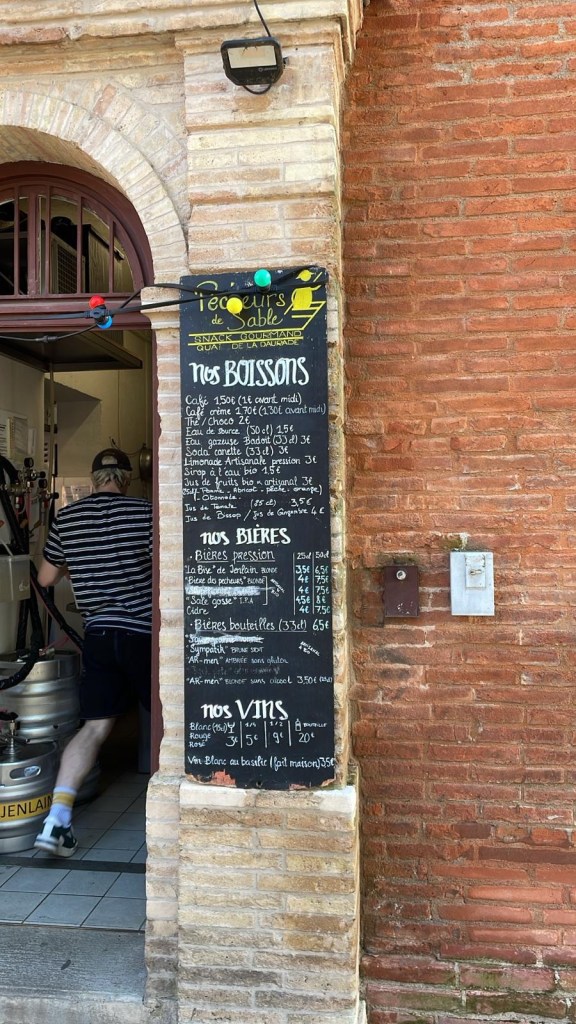 Pêcheurs
de Sable
SNACK GOURMAND
QUAI DE LA DAURADE
nos BOISSONS
Café 1,50€ (1€ avant midi)
Café crème 1,70€ (1,30€ avant midi)
Thé / Choco 2€
Eau de source (50 cl) 1,5€
Eau gazeuse Badoit (33 cl) 3€
Soda canette (33 cl) 3€
Limonade Artisanale pression 3€
Sirop à l'eau bio 1,5€
Jus de fruits bio artisanal 3€
25cl - Pomme - Abricot - pêche - orange)
Jus de Tomate (25 cl) 3,5€
Jus de Bissap / Jus de Gingembre 4€
nos BIÈRES
• Bières pression 25cl 50cl
"La Bise" de Jenlain BLONDE 3,5€ 6,5€
"Bière des pêcheurs" BLONDE 4€ 7,5€
4€ 7,5€
"Sale gosse" I.P.A 4,5€ 8€
Cidre 4€ 7,50€
• Bières bouteilles (33cl) 6,5€
"Sympatik" BRUNE
"AR-men" AMBRÉE sans gluten
"AR-men" BLONDE sans alcool 3,50€
nos VINS
Blanc (15cl) 1/4 1/2 BOUTEILLE
Rouge 3€ 5€ 9€ 20€
Rosé
Vin Blanc au basilic (fait maison) 3,5€
JENLAIN